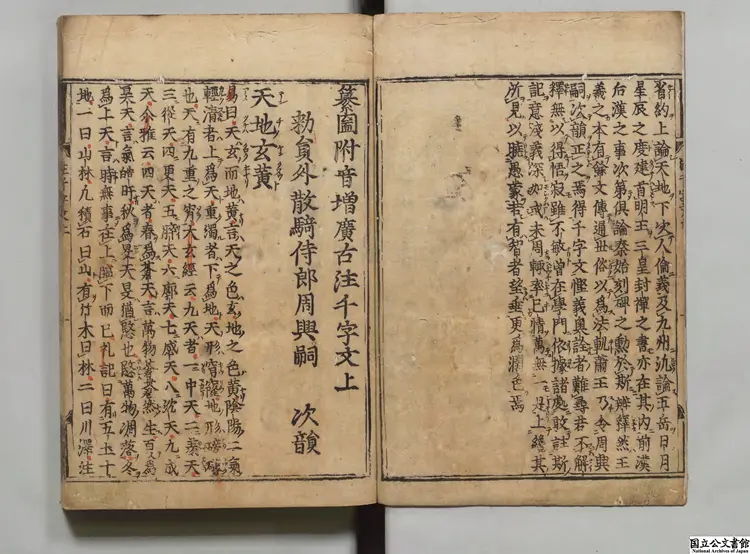 旨約上論天地下次人倫義及九州汎論五岳日月
星辰之度建首明王三皇封禪之書亦在其內前漢
后漢之事次第俱論秦始刻碑之勲於斯辨釋然王
羲之本有蕭文傳過世俗以為法軌蕭王乃令周興
嗣次韻正之焉得千字文慳義奧詮者難尋吾不解
釋無以得悟寂雖不敏嘗在學門依據諸處敢註斯
記意淺義深如或未周輙率己情萬無一是上繼其
所見以曉愚蒙君有智者望垂更為潤色焉
纂圖附音增廣古注千字文上
勑員外散騎侍郎周興嗣 次韻
天地玄黃
易曰天玄而地黃言天之色玄地之色黃陰陽二氣
輕清者上為天重濁者下為地天形穹窿地形磅礴
也天有九重之霄太玄經云九天者一中天二羨天
三從天四更天五睟天六廓天七咸天八沈天九成
天尒雅云四天者春為蒼天言萬物蒼蒼然生夏為
昊天言氣皓旰秋為旻天旻猶愍也愍萬物凋落冬
為上天言時無事在上臨下而已礼記曰有五土十
地一曰山林凡積石曰山有竹木曰林二曰川澤注
国立公文書館
National Archives of Japan